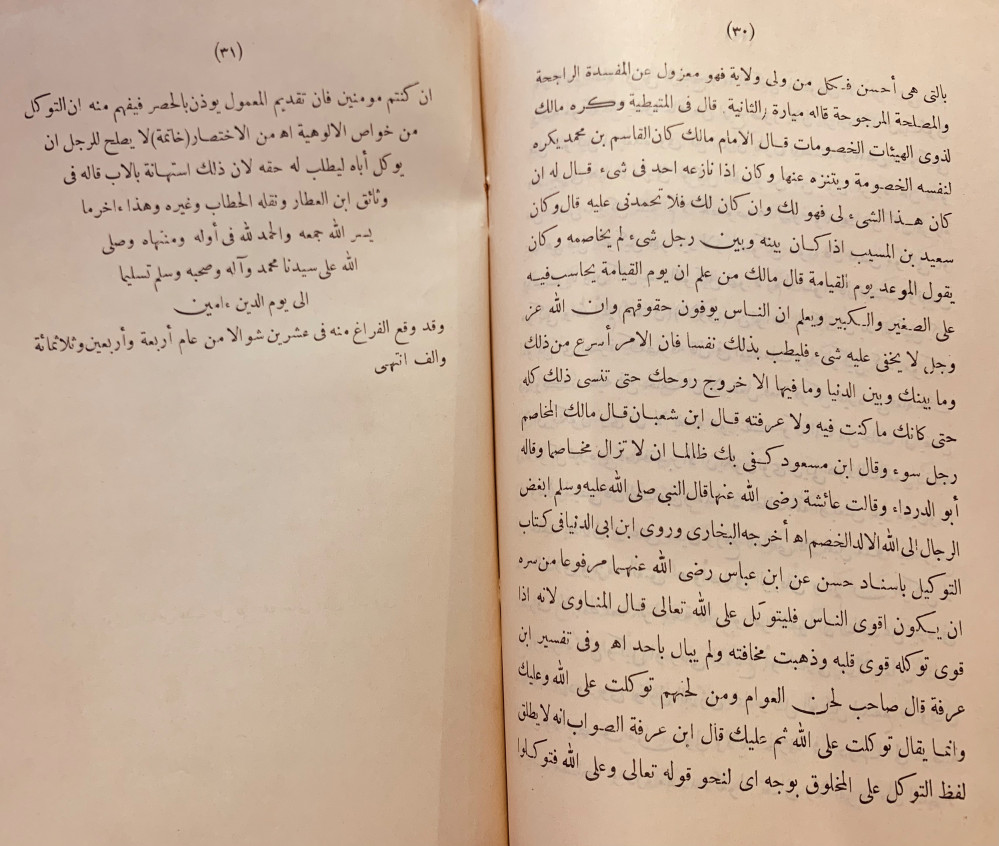 (٣٠)
بالتى هى أحسن فكل من ولى ولاية فهو معزول عن المفسدة الراجحة
والمصلحة المرجوحة قاله ميارة والثانية قال فى المتيطية وكره مالك
لذوى الهيئات الخصومات قال الامام مالك كان القاسم بن محمد يكره
لنفسه الخصومة ويتنزه عنها وكان اذا نازعه احد فى شىء قال له ان
كان هذا الشىء لى فهو لك وان كان لك فلا تحمدنى عليه قال وكان
سعيد بن المسيب اذا كان بينه وبين رجل شىء لم يخاصمه وكان
يقول الموعد يوم القيامة قال مالك من علم ان يوم القيامة يحاسب فيه
على الصغير والكبير ويعلم ان الناس يوفون حقوقهم وان الله عز
وجل لا يخفى عليه شىء فليطب بذلك نفسا فان الامر أسرع من ذلك
وما بينك وبين الدنيا وما فيها الا خروج روحك حتى تنسى ذلك كله
حتى كانك ما كنت فيه ولا عرفته قال ابن شعبان قال مالك المخاصم
رجل سوء وقال ابن مسعود كفى بك ظالما ان لا تزال مخاصما وقاله
أبو الدرداء وقالت عائشة رضى الله عنها قال النبي صلى الله عليه وسلم ابغض
الرجال الى الله الالد الخصم اه أخرجه البخارى وروى ابن ابى الدنيا فى كتاب
التوكيل باسناد حسن عن ابن عباس رضى الله عنهما مرفوعا من سره
ان يكون اقوى الناس فليتوكل على الله تعالى قال المناوى لانه اذا
قوى توكله قوى قلبه وذهبت مخافته ولم يبال باحد اه وفى تفسير ابن
عرفة قال صاحب لحن العوام ومن لحنهم توكلت على الله وعليك
وانما يقال توكلت على الله ثم عليك قال ابن عرفة الصواب انه لا يطلق
لفظ التوكل على المخلوق بوجه اى لنحو قوله تعالى وعلى الله فتوكلوا
(٣١)
ان كنتم مومنين فان تقديم المعمول يوذن بالحصر فيفهم منه ان التوكل
من خواص الالوهية اه من الاختصار (خاتمة) لا يصلح للرجل ان
يوكل أباه ليطلب له حقه لان ذلك استهانة بالاب قاله فى
وثائق ابن العطار ونقله الحطاب وغيره وهذا ءاخر ما
يسر الله جمعه والحمد لله فى أوله ومنتهاه وصلى
الله على سيدنا محمد وآله وصحبه وسلم تسليما
الى يوم الدين ءامين
وقد وقع الفراغ منه فى عشرين شوالا من عام أربعة وأربعين وثلاثمائة
والف انتهى